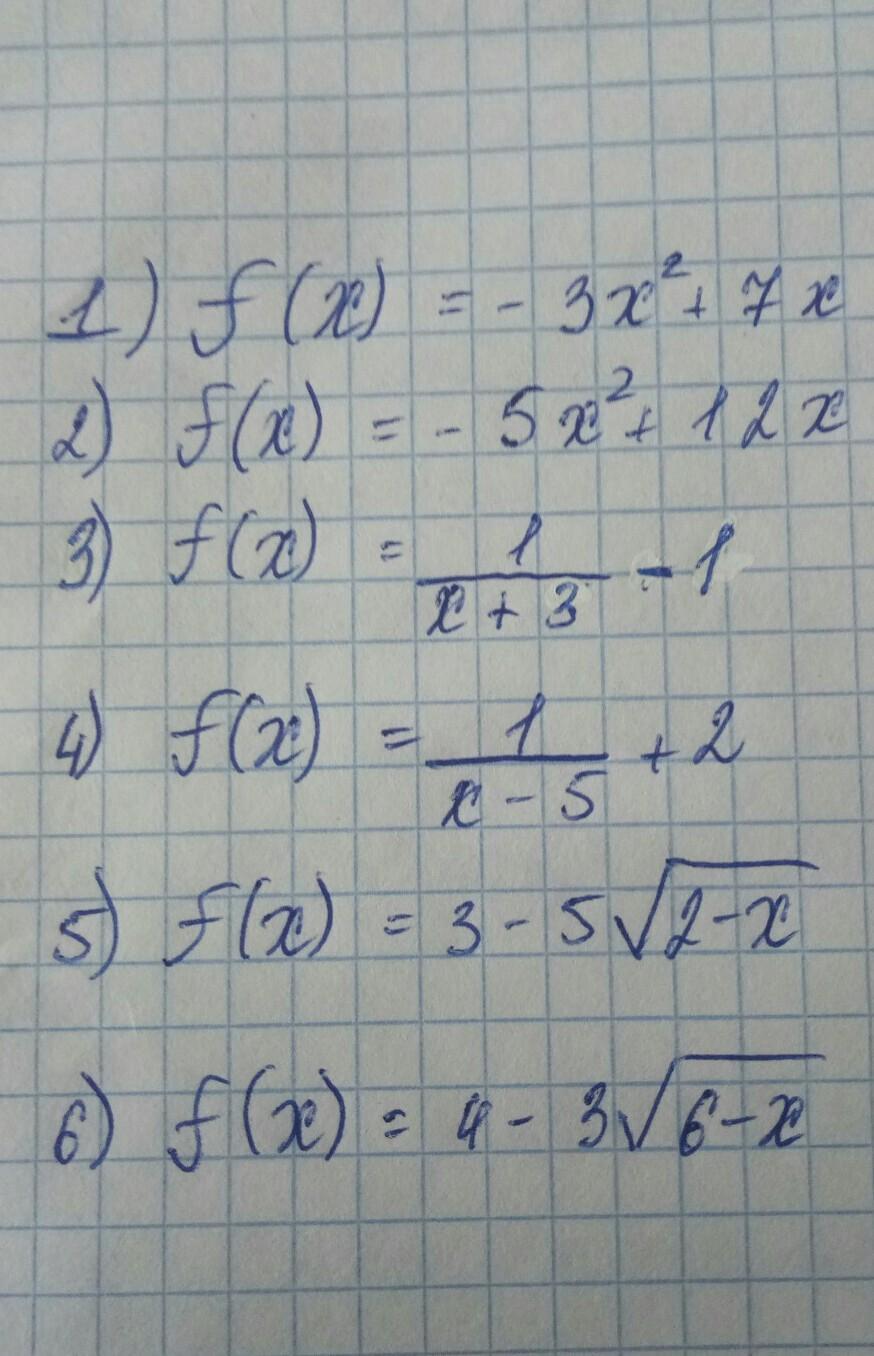 1) f(x) = - 3x² + 7x
2) f(x) = - 5x² + 12x
3) f(x) = 1/(x + 3) - 1
4) f(x) = 1/(x - 5) + 2
5) f(x) = 3 - 5√(2-x)
6) f(x) = 4 - 3√(6-x)